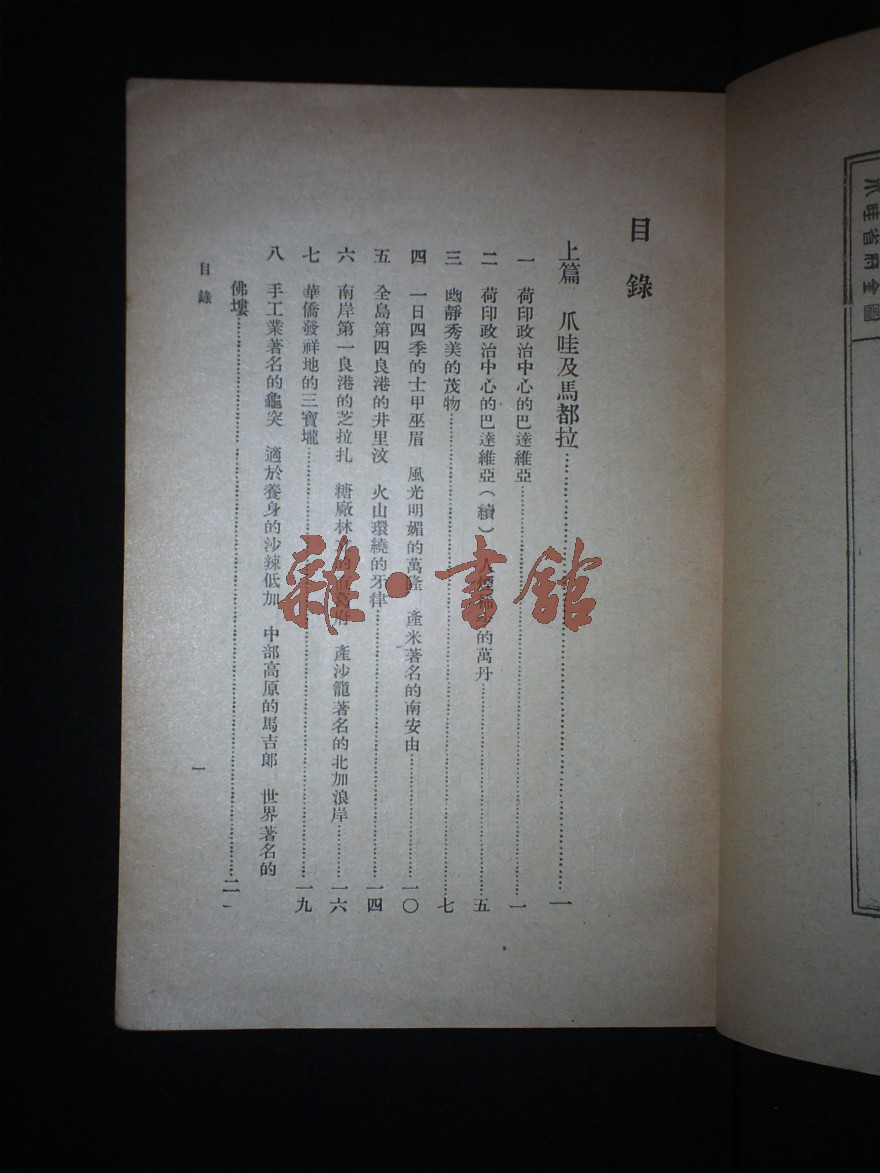 爪哇省府全圖
目錄
上篇 爪哇及馬都拉……一
一 荷印政治中心的巴達維亞……一
二 荷印政治中心的巴達維亞(續) 的萬丹……五
三 幽靜秀美的茂物……七
四 一日四季的士甲巫眉 風光明媚的萬隆 產米著名的南安由……一〇
五 全島第四良港的井里汶 火山環繞的牙律……一四
六 南岸第一良港的芝拉扎 糖廠林 產沙籠著名的北加浪岸……一六
七 華僑發祥地的三寶壠……一九
八 手工業著名的龜突 適於養身的沙辣低加 中部高原的馬吉郞 世界著名的
佛塿……二一
目錄
一
雜·書館